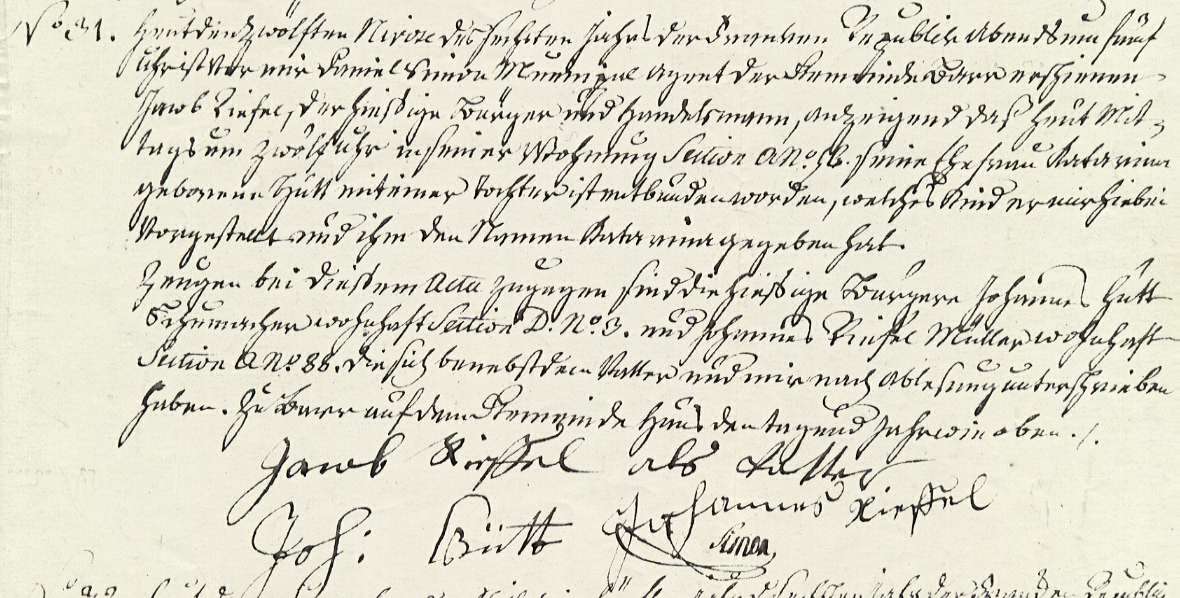 No 31. Heut den zwölften Nivose des sechsten Jahrs der Francken Republick Abends um fünf
Uhr ist vor mir Daniel Simon Municipal Agent der Gemeinde Barr erschienen
Jacob Riefel, der hießige Burger und Handelsmann, anzeigend daß heut Mit-
tags um zwölf Uhr in seiner Wohnung Section A No. 56. seine Ehefrau Katarina
gebohrene Hütt mit einer Tochter ist entbunden worden, welches Kind er mir hiebei
Vorgestellt und ihm den Namen Katarina gegeben hat.
Zeugen bei dießem Acta zugegen sind die hießige Burgere Johannes Hütt
Schumacher wohnhaft Section D. No. 3. und Johannes Riefel Müller wohnhaft
Section A No. 88. die sich benebst dem Vatter und mir nach Ablesung unterschrieben
haben. Zu Barr auf dem Gemeinde Haus den tag und Jahr wie oben ./.
Jacob Rieffel als Vatter
Joh: Hütt Johannes Rieffel
Simon,